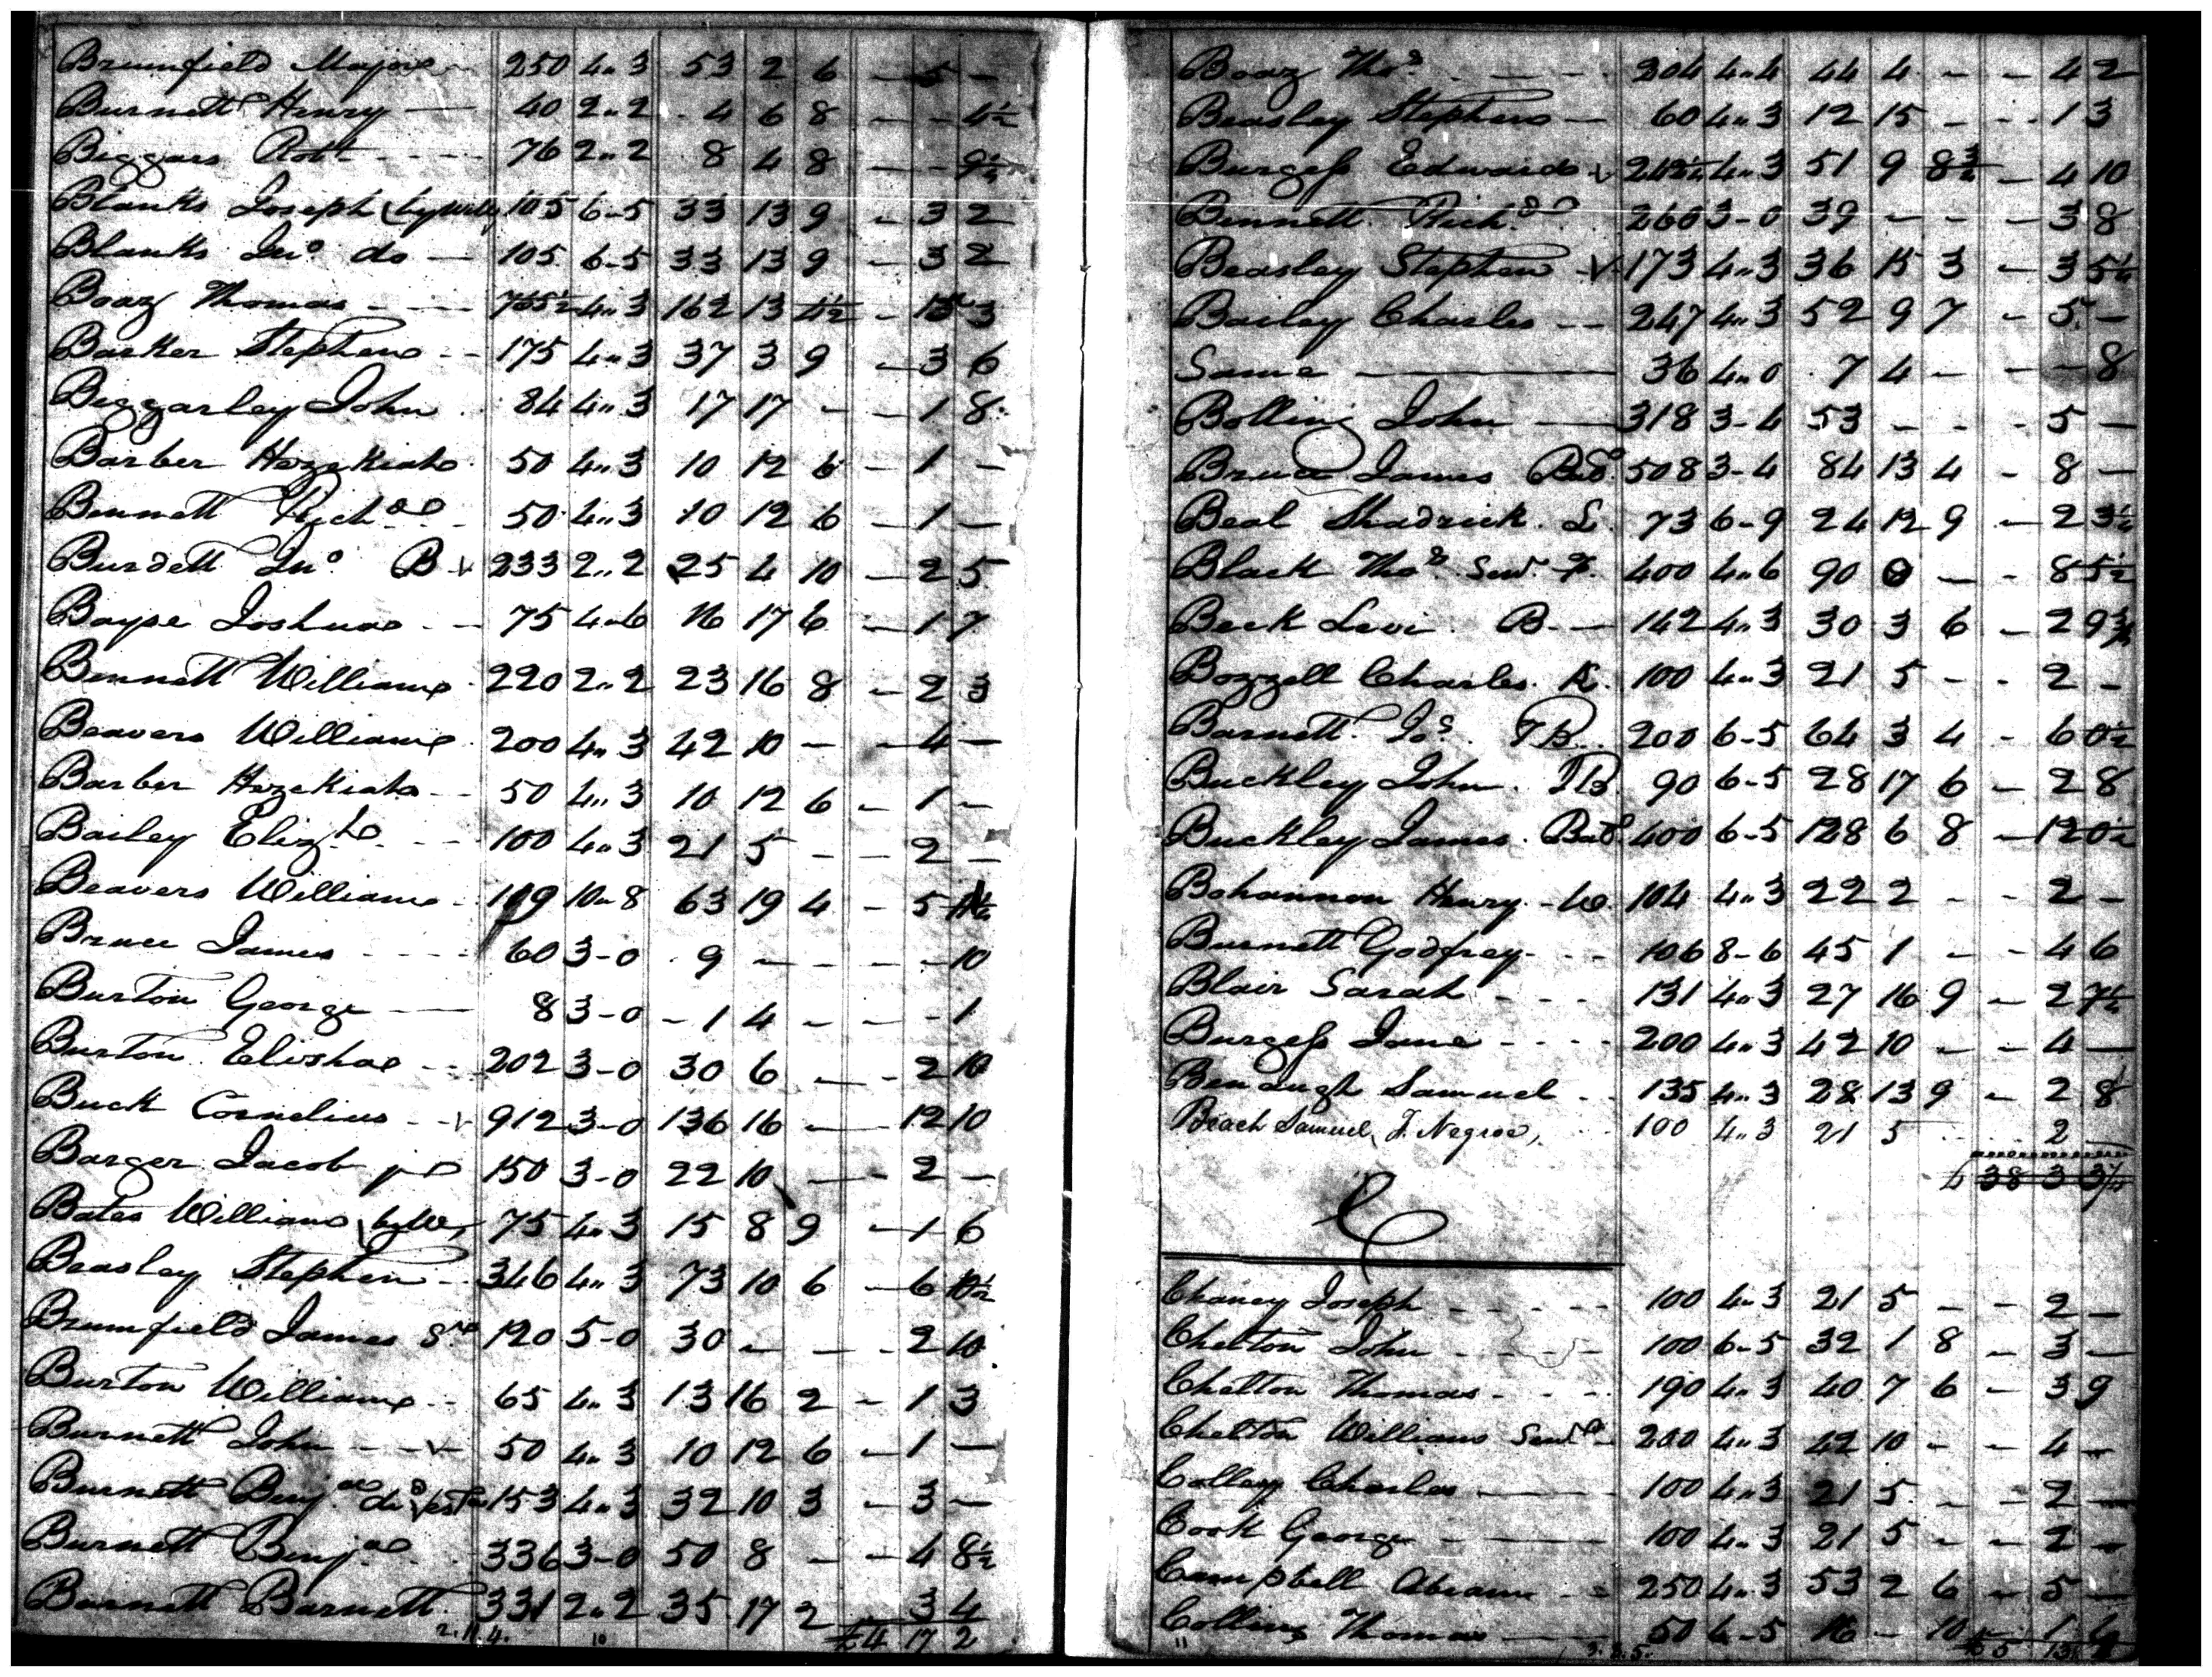 Brumfield Major 250 4..3 53 2 6 — 5 —
Burnett Henry — 40 2..2 4 6 8 — - 4½
Biggars Robt 76 2..2 8 4 8 — - 9½
Blanks Joseph (by 105 6-5 33 13 9 - 3 2
Blanks Jno. do — 105 6-5 33 13 9 - 3 2
Boaz Thomas 765½ 4..3 162 13 4½ - 15 3
Barker Stephen 175 4..3 37 3 9 - 3 6
Beggarley John 84 4..3 17 17 - - 1 8
Barber Hezekiah 50 4..3 10 12 6 - 1 -
Bennett Richd 50 4..3 10 12 6 - 1 —
Burdett Jno. B 233 2..2 25 4 10 - 2 5
Bayse Joshua 75 4-6 16 17 6 - 1 7
Bennett William 220 2..2 23 16 8 - 2 3
Beavers William 200 4..3 42 10 - - 4 —
Barber Hezekiah 50 4..3 10 12 6 - 1 -
Bailey Elizth 100 4..3 21 5 - - 2 -
Beavers William 109 10-8 63 19 4 - 5
Bruce James 60 3-0 9 - - - - 10
Burton George — 8 3-0 - 1 4 - - - 1
Burton Elisha 202 3-0 30 6 — - 2 10
Buck Cornelius 912 3-0 136 16 — 12 10
Barger Jacob 150 3-0 22 10 — - 2 -
Bates William 75 4..3 15 8 9 - 1 6
Beasley Stephen 346 4..3 73 10 6 - 6 10½
Brumfield James Sr 120 5-0 30 - - - 2 10
Burton William 65 4..3 13 16 2 - 1 3
Burnett John 50 4..3 10 12 6 - 1 —
Burnett Benja. 153 4..3 32 10 3 - 3 —
Burnett Benja 336 3-0 50 8 - - 4 8½
Burnett Barnett 331 2..2 35 17 2 3 4
2.11.4. 10 £4 17 2
Boaz Thos. 204 4..4 44 4 - - 4 2
Beasley Stephen — 60 4..3 12 15 - - 1 3
Burgess Edward 242¼ 4..3 51 9 8¾ - 4 10
Bennett Richd 260 3-0 39 - - - 3 8
Beasley Stephen 173 4..3 36 15 3 - 3 5½
Bailey Charles 247 4..3 52 9 7 - 5 -
Same — 36 4..0 7 4 - - - 8
Bolling John — 318 3-4 53 - - - 5 —
Bruce James 508 3-4 84 13 4 - 8 —
Beal Shadrick L 73 6-9 24 12 9 - 2 3½
Black Thos. 400 4..6 90 0 - - 8 5½
Beck Levi B — 142 4..3 30 3 6 - 2 9¾
Bozzell Charles K. 100 4..3 21 5 - - 2 -
Barnett Jos. TB 200 6-5 64 3 4 - 6 0½
Buckley John TB 90 6-5 28 17 6 - 2 8
Buckley James 400 6-5 128 6 8 - 12 0½
Bohannon Henry - W. 104 4..3 22 2 - - 2 -
Burnett Godfrey 106 8-6 45 1 - - 4 6
Blair Sarah 131 4..3 27 16 9 - 2 7½
Burgess Jane 200 4..3 42 10 - - 4 —
Benaugh Samuel 135 4..3 28 13 9 - 2 8
Beach Samuel, F. Negroe, 100 4..3 21 5 2 -
£ 38 3
C
Chaney Joseph 100 4..3 21 5 - - 2 -
Chelton John 100 6-5 32 1 8 - 3 —
Chelton Thomas 190 4..3 40 7 6 - 3 9
Chelton William Senr 200 4..3 42 10 - - 4 -
Colley Charles — 100 4..3 21 5 - - 2 —
Cook George — 100 4..3 21 5 - - 2 -
Campbell Abram 250 4..3 53 2 6 - 5 -
Collins Thomas — 50 6-5 16 - 10 1 6